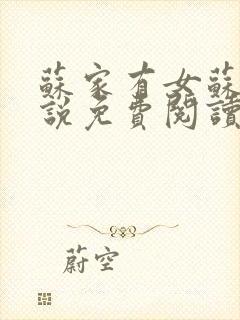 蘇家有女蘇
說免費閱讀
蔚空